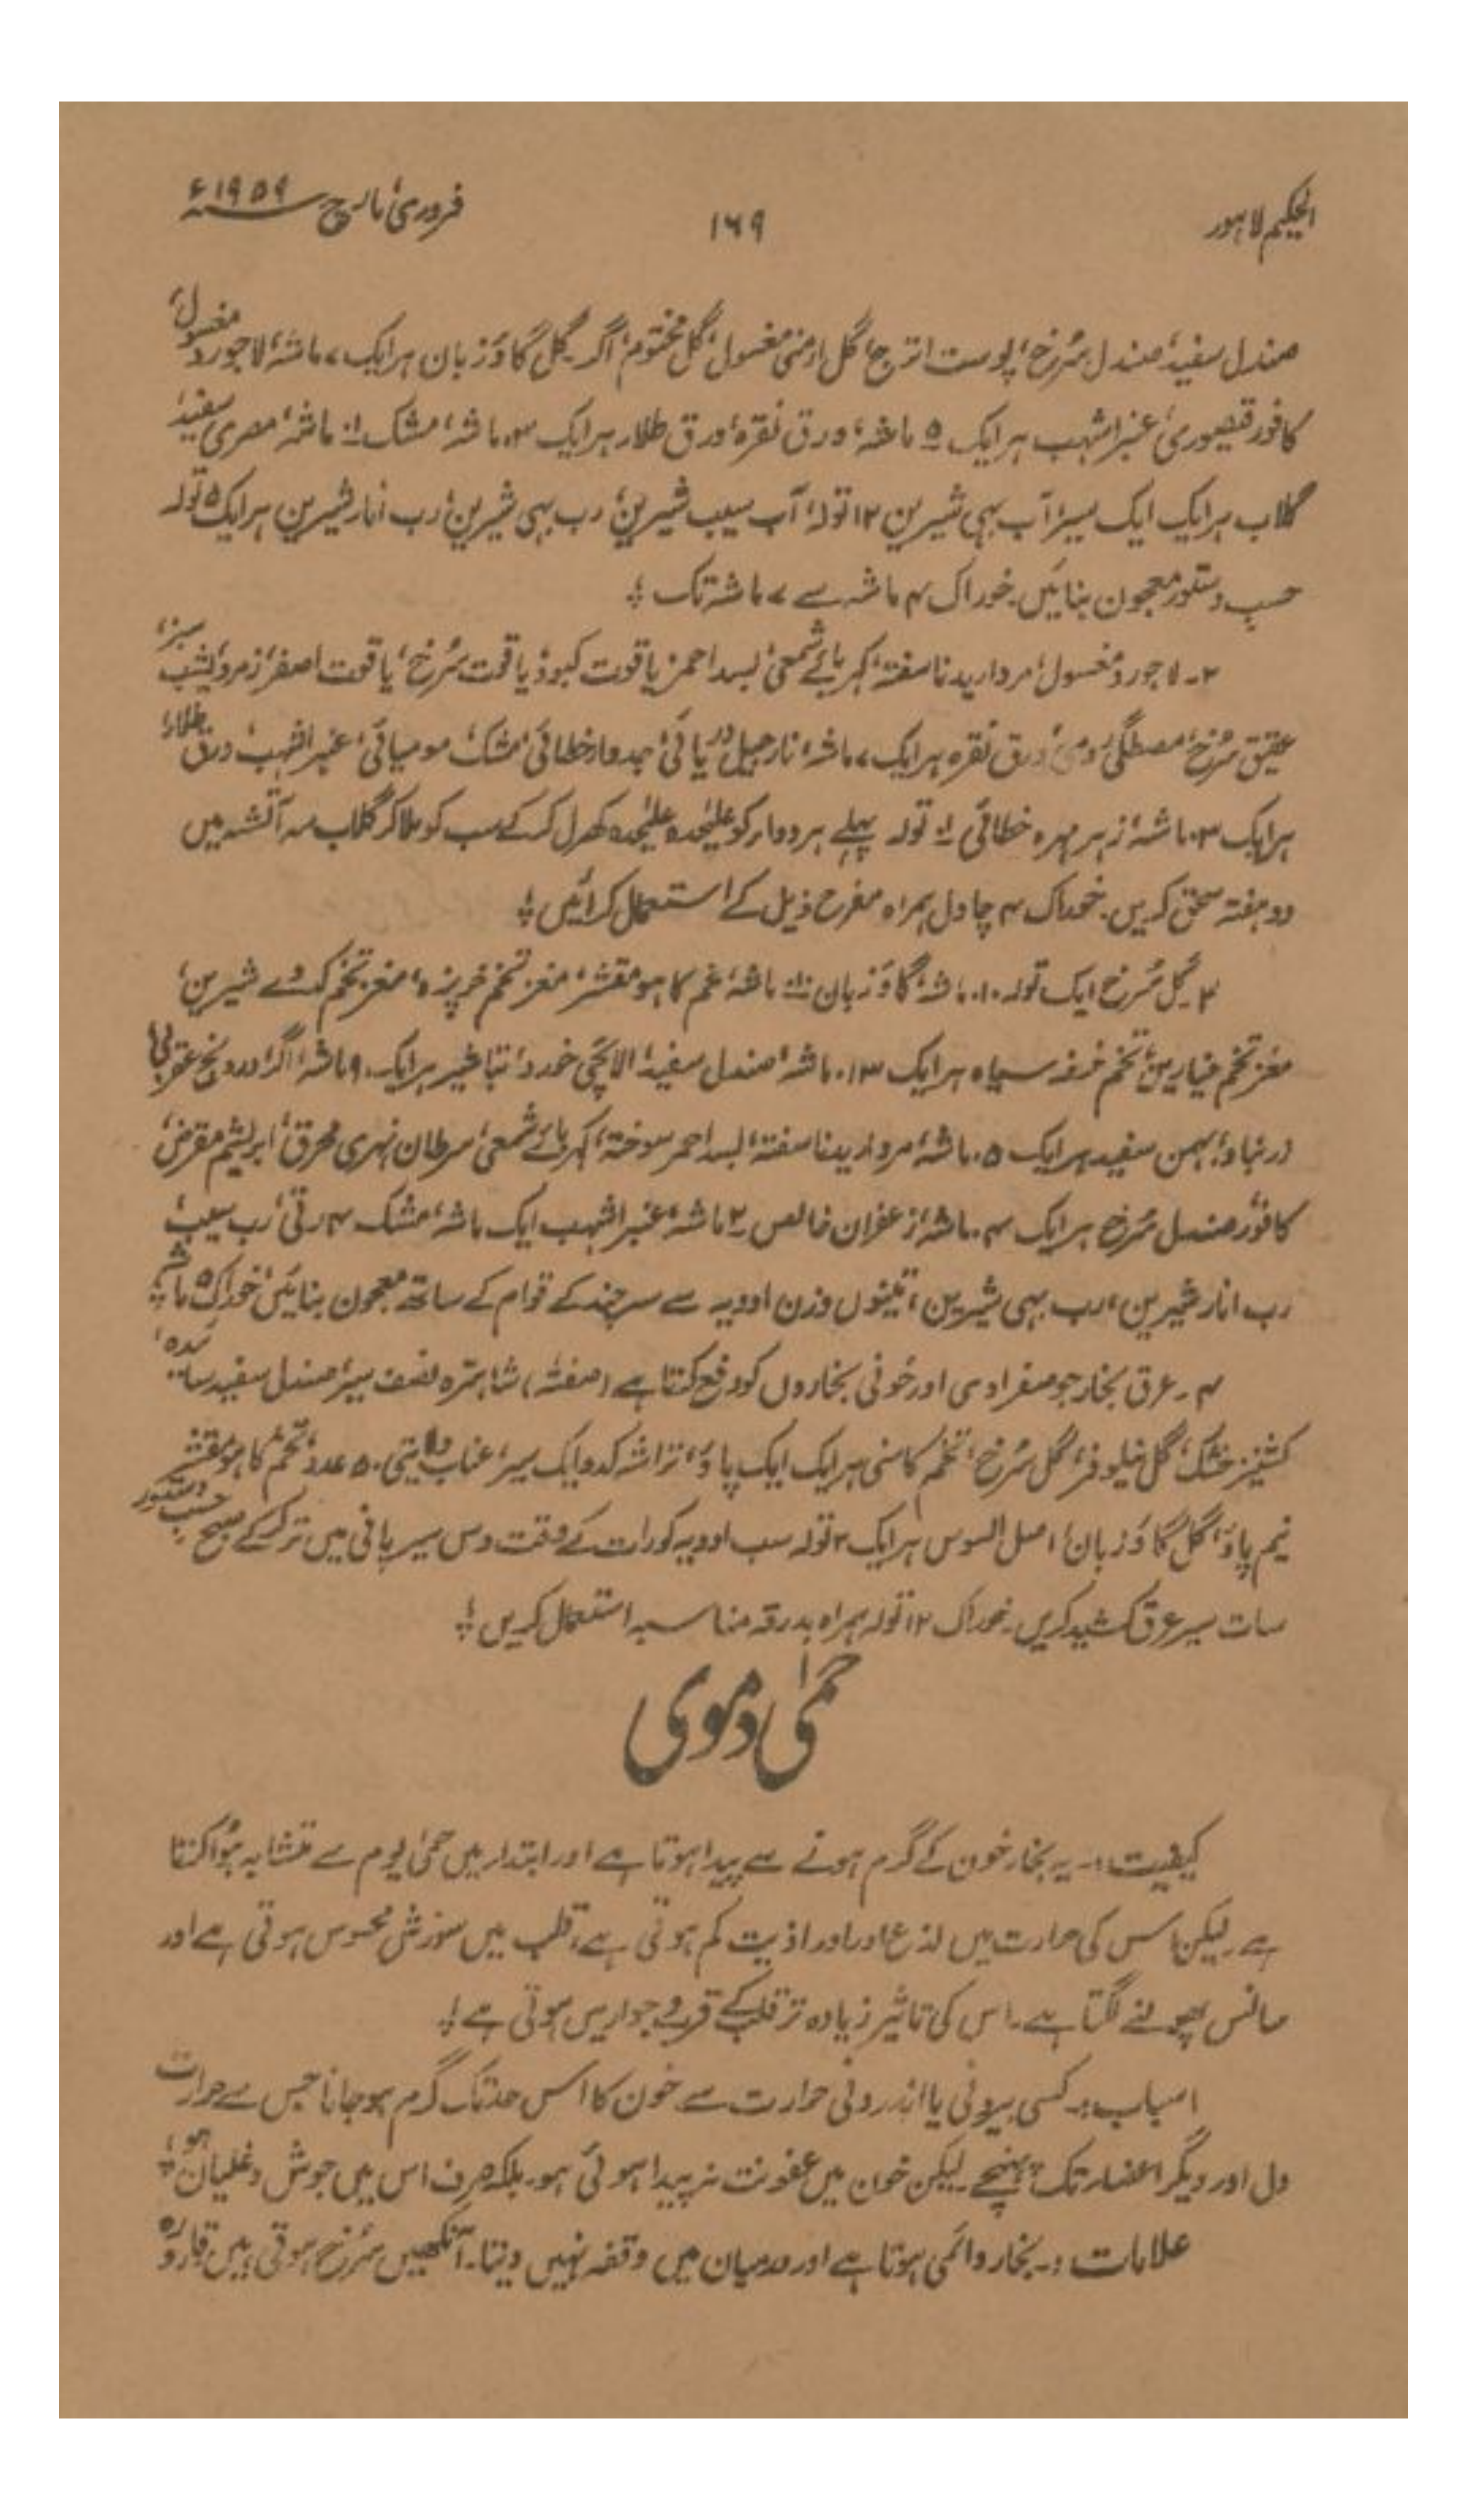 الحکیم لاہور
۱۶۹
فروری، مارچ ۱۹۵۹ء
صندل سفید، صندل سُرخ، پوست اترج، گل ارمنی مغسول، گل مختوم، اگر، گل گاؤ زبان ہر ایک ۷ ماشہ، لاجورد مغسول،
کافور قیصوری، عنبر اشہب ہر ایک ۵ ماشہ، ورق نقرہ، ورق طلاء ہر ایک ۳ ماشہ، مشک ماشہ، مصری سفید،
گلاب ہر ایک ایک سیر، آب بہی شیرین ۱۲ تولہ، آب سیب شیرین، رب بہی شیرین، رب انار شیرین ہر ایک ۵ تولہ
حسب دستور معجون بنائیں۔ خوراک ۴ ماشہ سے ۷ ماشہ تک ؛
۲۔ لاجورد مغسول، مروارید ناسفتہ، کہربائے شمعی، بسد احمر، یاقوت کبود، یاقوت سُرخ، یاقوت اصفر، زمرد، یشب سبز،
عقیق سُرخ، مصطگی رومی، ورق نقرہ ہر ایک ۷ ماشہ، نارجیل دریائی، جدوار خطائی، مشک، مومیائی، عنبر اشہب، ورق طلاء،
ہر ایک ۳ ماشہ، زہر مہرہ خطائی تولہ پہلے ہر دوار کو علیٰحدہ علیٰحدہ کھرل کر کے سب کو ملا کر گلاب سہ آتشہ میں
دو ہفتہ سحق کریں۔ خوراک ۴ چاول ہمراہ مفرح ذیل کے استعمال کرائیں ؛
۳۔ گل سُرخ ایک تولہ ۱۰ ماشہ، گاؤ زبان ماشہ، تخم کاہو مقشر، مغز تخم خرپزہ، مغز تخم کدوے شیرین،
مغز تخم خیارین، تخم خرفہ سیاہ ہر ایک ۱۳ ماشہ، صندل سفید، الائچی خورد، تباشیر ہر ایک ۹ ماشہ، اگر، درونج عقربی،
زرنباد، بہمن سفید ہر ایک ۵ ماشہ، مروارید ناسفتہ، بسد احمر سوختہ، کہربائے شمعی، سرطان نہری محرق، ابریشم مقرض،
کافور، صندل سُرخ ہر ایک ۴ ماشہ، زعفران خالص ۲ ماشہ، عنبر اشہب ایک ماشہ، مشک ۴ رتی، رب سیب،
رب انار شیرین، رب بہی شیرین، تینوں وزن ادویہ سے سہ چند کے قوام کے ساتھ معجون بنائیں، خوراک ۵ ماشہ ؛
۴۔ عرق بخار جو صفراوی اور خونی بخاروں کو دفع کرتا ہے (صفتہ) شاہترہ نصف سیر، صندل سفید سائیدہ،
کشنیز خشک، گل نیلوفر، گل سُرخ، تخم کاسنی ہر ایک ایک پاؤ، تراشہ کدو ایک سیر، عناب ولایتی ۵۰ عدد، تخم کاہو مقشر
نیم پاؤ، گل گاؤ زبان، اصل السوس ہر ایک ۲ تولہ سب ادویہ کو رات کے وقت دس سیر پانی میں تر کر کے صبح حسب دستور
سات سیر عرق کشید کریں۔ خوراک ۱۲ تولہ ہمراہ بدرقہ مناسبہ استعمال کریں ؛
حمیٰ دموی
کیفیت:۔ یہ بخار خون کے گرم ہونے سے پیدا ہوتا ہے اور ابتداء میں حمیٰ یوم سے متشابہ ہُوا کرتا
ہے۔ لیکن اس کی حرارت میں لذع اور اذیت کم ہوتی ہے، قلب میں سوزش محسوس ہوتی ہے اور
سانس پھولنے لگتا ہے۔ اس کی تاثیر زیادہ تر قلب کے قرب و جوار میں ہوتی ہے ؛
اسباب:۔ کسی بیرونی یا اندرونی حرارت سے خون کا اس حد تک گرم ہو جانا جس سے حرارت
دل اور دیگر اعضاء تک پہنچے۔ لیکن خون میں عفونت نہ پیدا ہوئی ہو۔ بلکہ صرف اس میں جوش و غلیان ہو ؛
علامات:۔ بخار دائمی ہوتا ہے اور درمیان میں وقفہ نہیں دیتا۔ آنکھیں سُرخ ہوتی ہیں، قارورہ